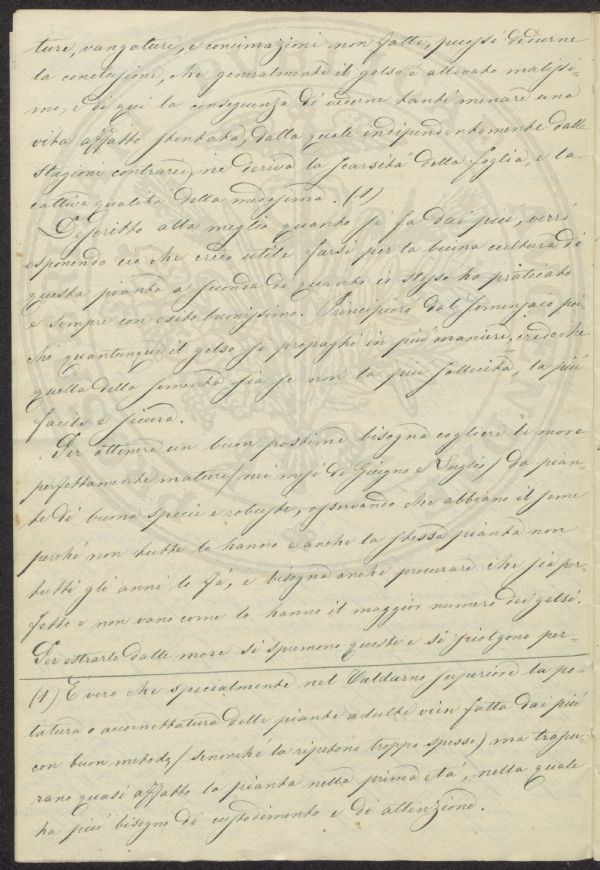 ture, vangature, e concimazioni non fatte, puossi dedurne
la conclusione, che generalmente il gelso è allevato malissi-
mo, e di qui la conseguenza di vederne tanti menare una
vita affatto stentata, dalla quale indipendentemente dalle
stagioni contrarie, ne deriva la scarsità della foglia, e la
cattiva qualità della medesima. (1)
Descritto alla meglio quanto si fa dai più, verrò
esponendo ciò che credo utile farsi per la buona cultura di
questa pianta a seconda di quanto io stesso ho praticato
e sempre con esito buonissimo. Principierò dal Semenzaio poi-
chè quantunque il gelso si propaghi in più maniere, credo che
quella della sementa sia se non la più sollecita, la più
facile e sicura.
Per ottenere un buon postime bisogna cogliere le more
perfettamente mature (nei mesi di Giugno e Luglio) da pian-
te di buona specie e robuste, osservando che abbiano il seme
perchè non tutte lo hanno e anche la stessa pianta non
tutti gli anni lo fà, e bisogna anche procurare che sia per-
fetto e non vano come lo hanno il maggior numero dei gelsi.
Per estrarlo dalle more si spremono queste e si sciolgono per-
(1) È vero che specialmente nel Valdarno superiore la po-
tatura o accornettatura delle piante adulte vien fatta dai più
con buon metodo (senonchè la ripetono troppo spesso) ma trascu-
rano quasi affatto la pianta nella prima età, nella quale
ha più bisogno di custodimento e di attenzione.